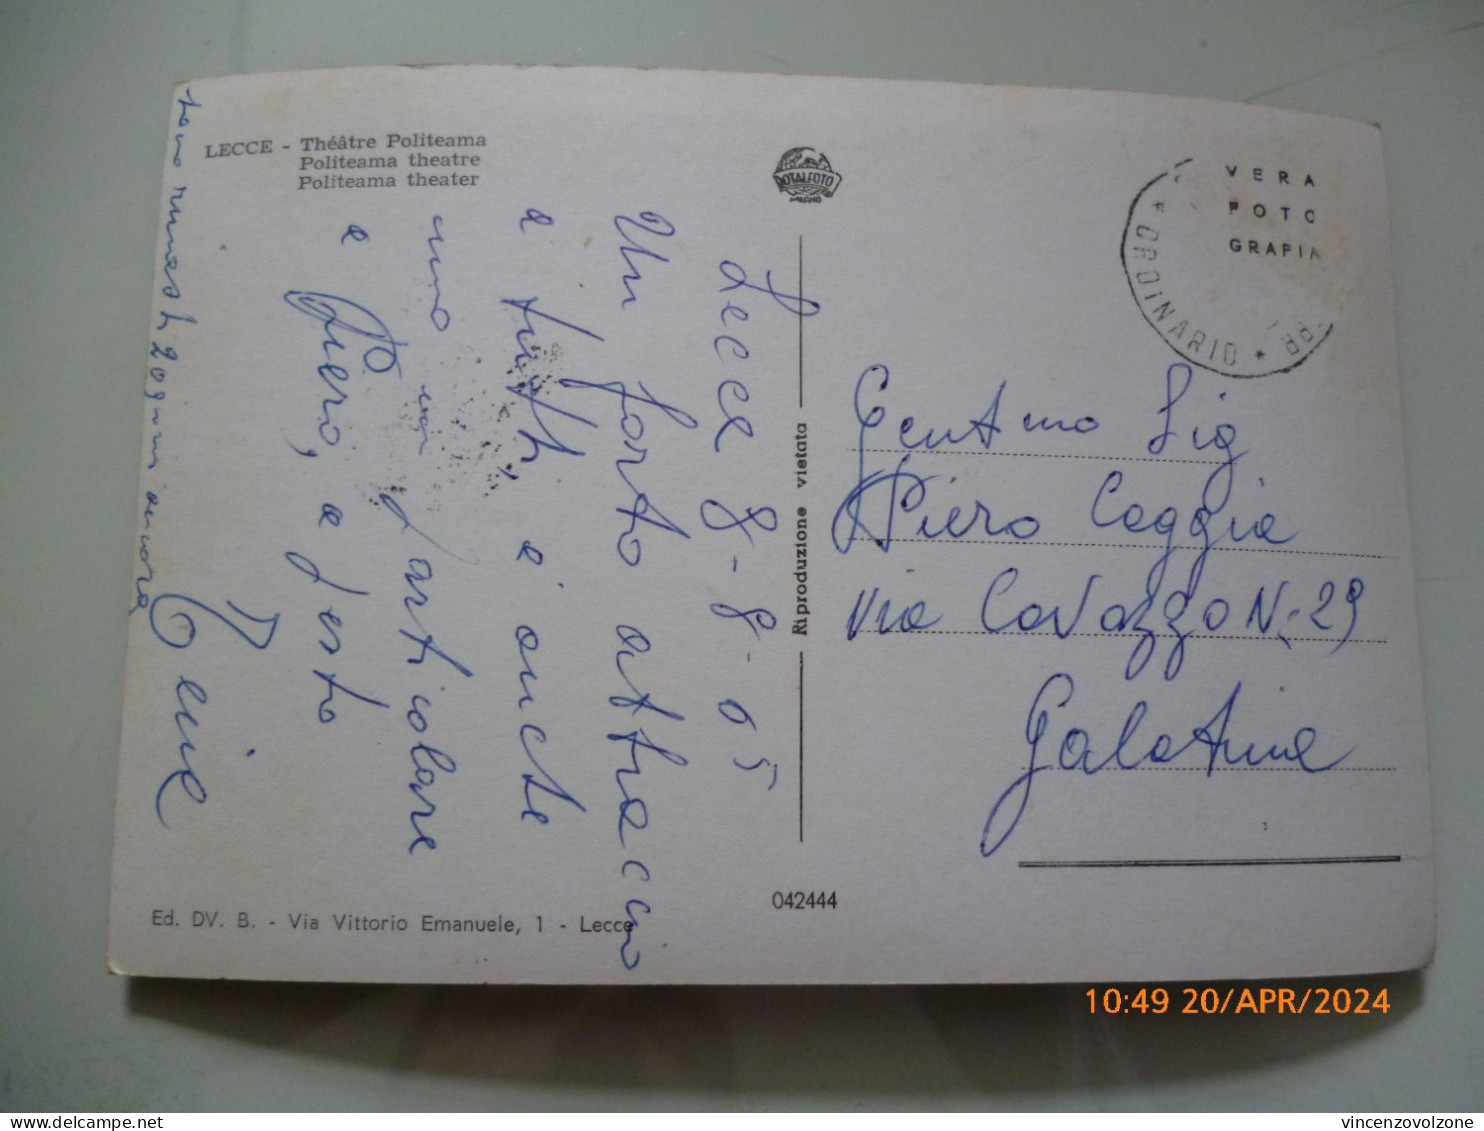 LECCE - Théâtre Politeama
Politeama theatre
Politeama theater
ROTALFOTO
MILANO
VERA
FOTO
GRAFIA
* ORDINARIO *
Lecce 8-8-65
Un forte abbraccio
a tutti, e anche
uno in particolare
a Piero, a
sono rimasti 20 giorni ancora
Riproduzione vietata
Gentmo Sig
Piero Coggia
Via Cavazzo N. 29
Galatina
042444
Ed. DV. B. - Via Vittorio Emanuele, 1 - Lecce
10:49 20/APR/2024
vincenzovolzone